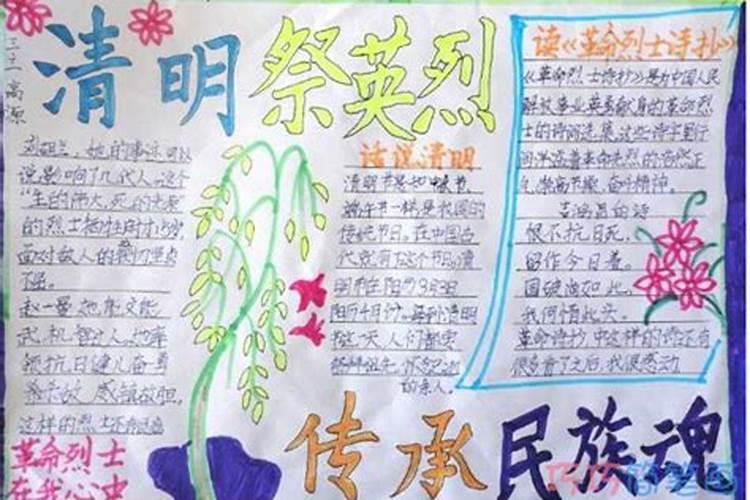 清明祭英烈
三三 高源
刘胡兰，她的事迹可以
说影响了几代人，这个
"生的伟大，死的光荣"
的烈士牺牲时才15岁，
面对敌人的
不屈。
赵一曼她能文能
武,机智过人,她率
领抗日健儿奋勇
杀敌，
这样的烈士还有
革命烈士
在我心中
话说清明
清明节是和春节、
端午节一样,是我国的
传统节日。在中国古
代就有了这个节。清
明
阳历4月份。每到清明
的这天,人们都要
祭拜祖先,怀念
的亲人。
读《革命烈士诗抄》
《革命烈士诗抄》是为中国人民
解放事业英勇献身的革命烈
士的诗词选集。这些诗字里行
间
吉鸿昌的诗
恨不抗日死，
留作今日羞。
国破尚如此，
我何惜此头。
革命诗抄中这样的诗还有
很多，看了之后，我很感动
传承民族魂
巧巧简笔画